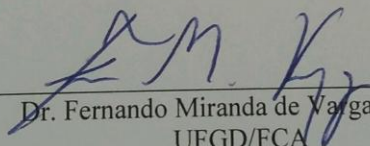 Dr. Fernando Miranda de Varga
UFGD/FCA